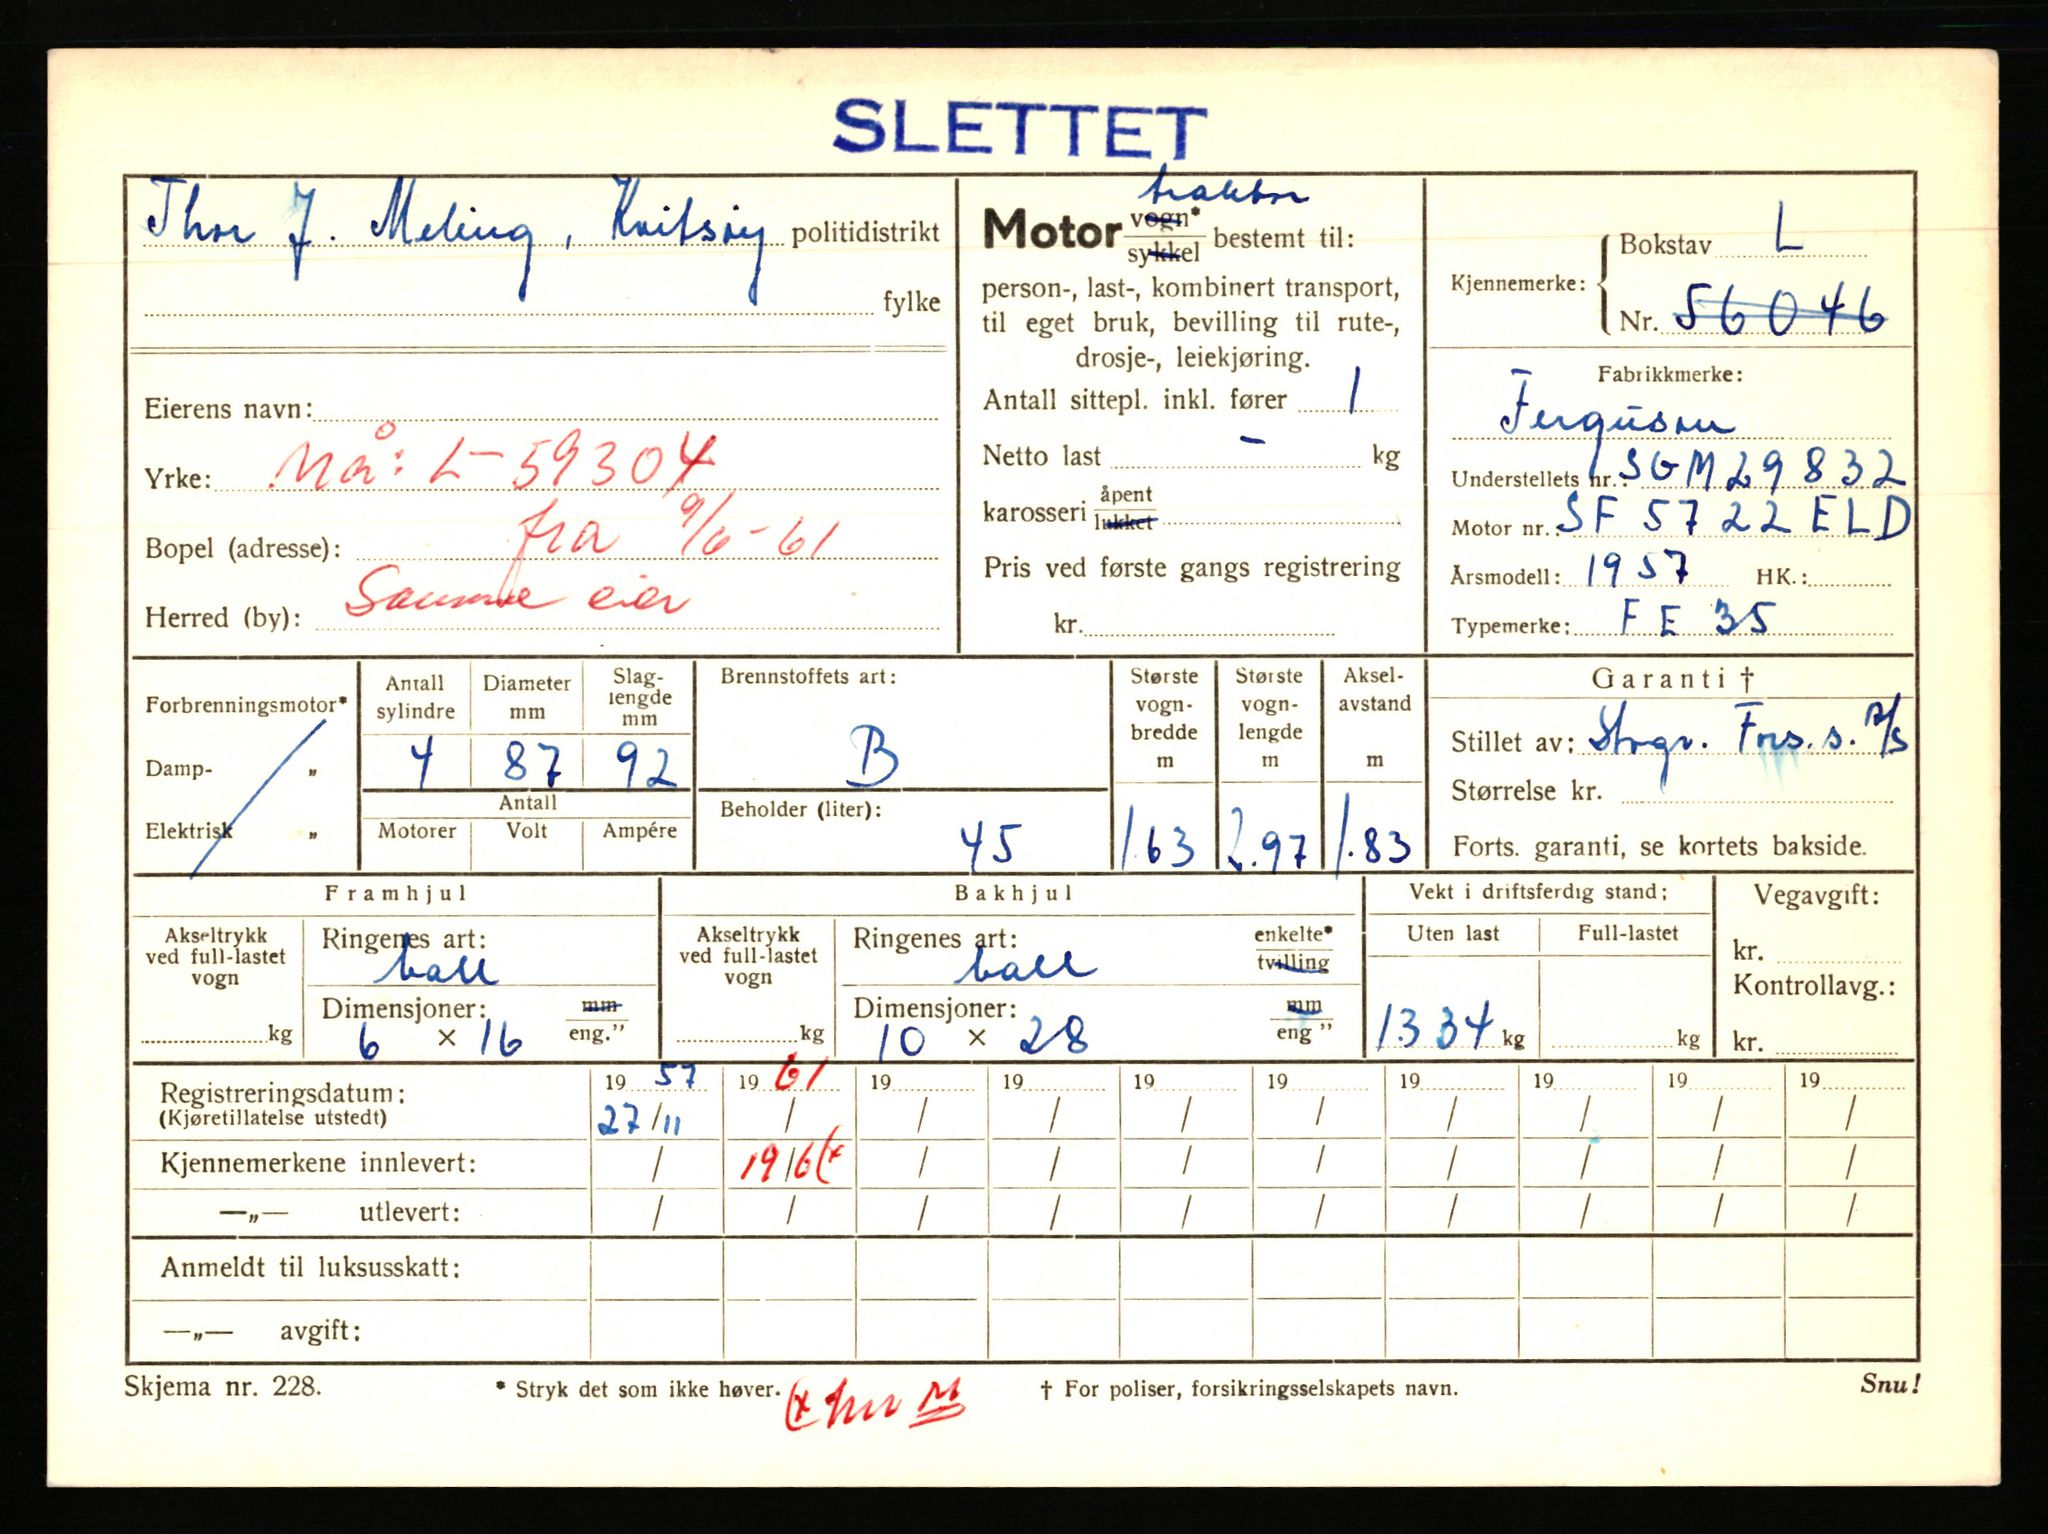 SLETTET
Thor J. Meling, Kvitsøy politidistrikt
fylke
Eierens navn:
Yrke: Nå: L-59304
Bopel (adresse): fra 9/6-61
Herred (by): Samme eier
traktor
Motor vogn* / sykkel bestemt til:
person-, last-, kombinert transport,
til eget bruk, bevilling til rute-,
drosje-, leiekjøring.
Antall sittepl. inkl. fører 1
Netto last - kg
karosseri åpent / lukket
Pris ved første gangs registrering
kr.
Kjennemerke: Bokstav L
Nr. 56046
Fabrikkmerke:
Ferguson
Understellets nr.: SGM29832
Motor nr.: SF 5722 ELD
Årsmodell: 1957 HK.:
Typemerke: FE 35
Forbrenningsmotor*
Damp- „
Elektrisk „
Antall sylindre
4
Diameter mm
87
Slag-lengde mm
92
Antall
Motorer Volt Ampére
Brennstoffets art:
B
Beholder (liter):
45
Største vogn-bredde m
1.63
Største vogn-lengde m
2.97
Aksel-avstand m
1.83
Garanti †
Stillet av: Fors.s. A/S
Størrelse kr.
Forts. garanti, se kortets bakside.
Framhjul
Akseltrykk ved full-lastet vogn
kg
Ringenes art:
ball
Dimensjoner: mm
6 × 16 eng.”
Bakhjul
Akseltrykk ved full-lastet vogn
kg
Ringenes art: enkelte*
ball tvilling
Dimensjoner: mm
10 × 28 eng ”
Vekt i driftsferdig stand:
Uten last Full-lastet
1334 kg kg
Vegavgift:
kr.
Kontrollavg.:
kr.
Registreringsdatum: 19 57 19 61 19 19 19 19 19 19 19 19
(Kjøretillatelse utstedt) 27/11 / / / / / / / / /
Kjennemerkene innlevert: / 19/6 (x / / / / / / / /
—„— utlevert: / / / / / / / / / /
Anmeldt til luksusskatt:
—„— avgift:
Skjema nr. 228. * Stryk det som ikke høver. † For poliser, forsikringsselskapets navn. Snu!
(x